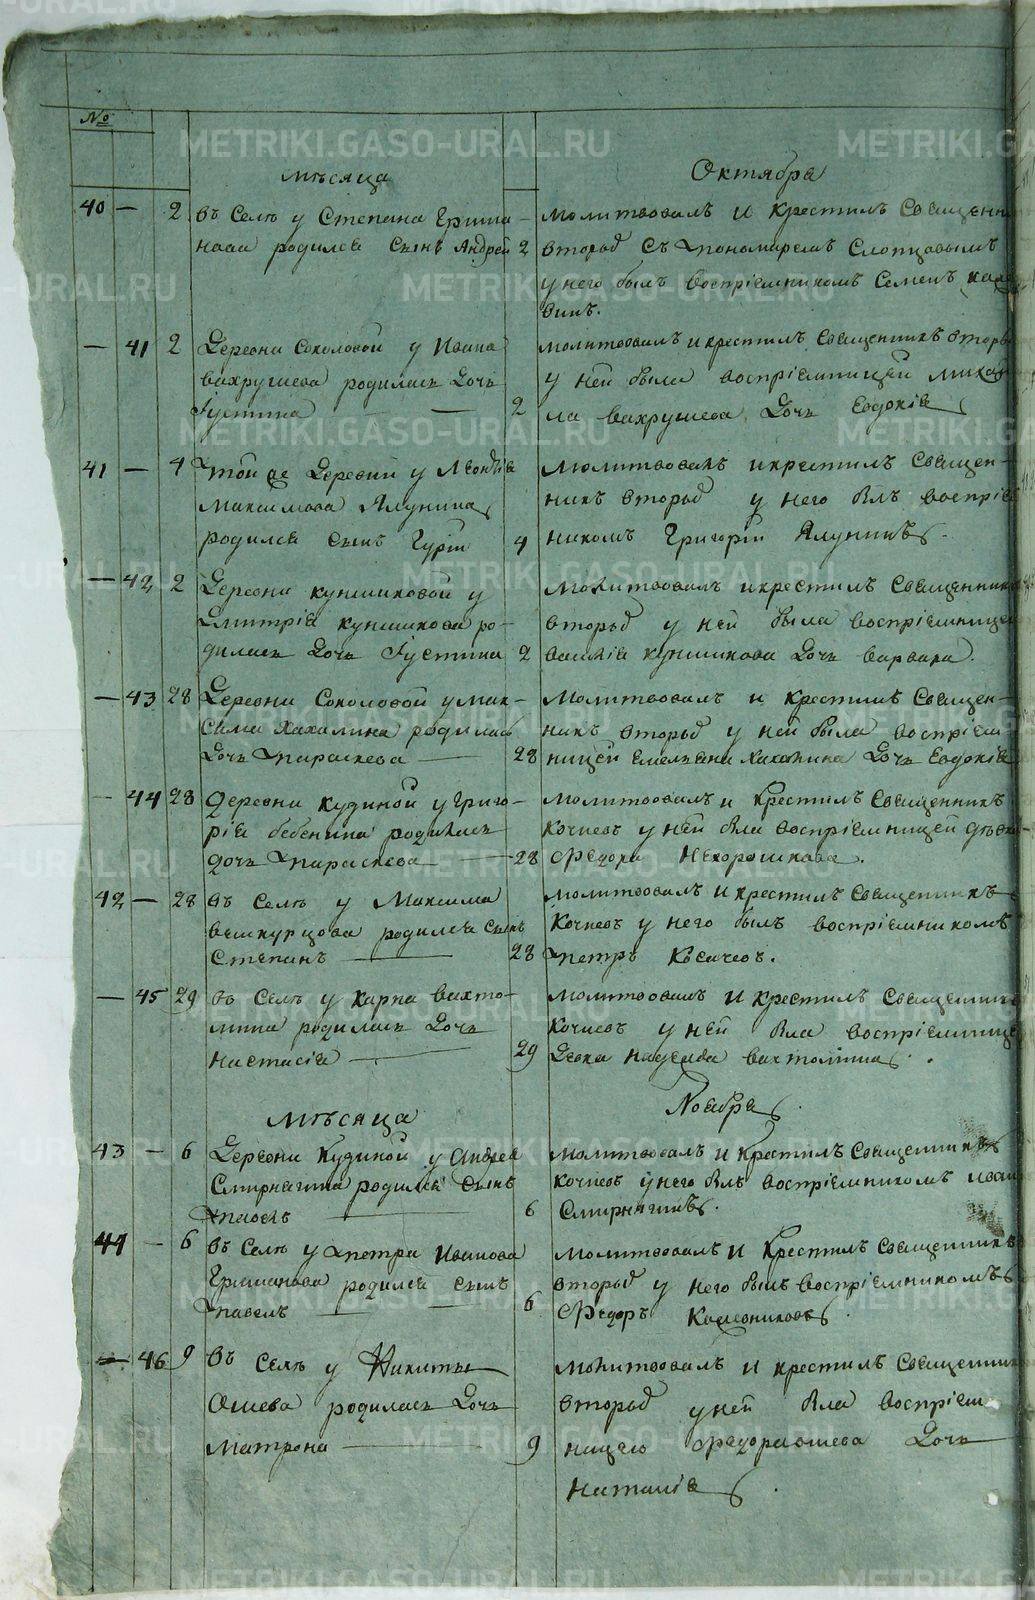 №
Мѣсяца Октября
40 — 2 Въ Селѣ у Степана Гриша- Молитвовалъ и крестилъ Священн
нова родился Сынъ Андрей 2 вторый съ пономаремъ Слопцовымъ
у него былъ воспріемникомъ Семенъ
винъ.
— 41 2 Деревни Соколовой у Ивана Молитвовалъ и крестилъ Священникъ вторый
Вахрушева родилась Дочь у ней была воспріемницей Михай
Іустина — 2 ла Вахрушева Дочь Евдокія
41 — 4 Той же Деревни у Леонтія Молитвовалъ и крестилъ Священ-
Максимова Ялунина никъ вторый у него былъ воспріе
родился Сынъ Гурій 4 никомъ Григорій Ялунинъ.
— 42 2 Деревни Куншиковой у Молитвовалъ и крестилъ Священникъ
Дмитрія Куншикова ро- вторый у ней была воспріемницей
дилась Дочь Іустина 2 Василія Куншикова Дочь Варвара.
— 43 28 Деревни Соколовой у Мак- Молитвовалъ и крестилъ Священ-
сима Хахалина родилась никъ вторый у ней была воспріем-
Дочь Параскева — 28 ницей Емельяна Хахалина Дочь Евдокія
— 44 28 Деревни Кудиной у Григо- Молитвовалъ и Крестилъ Священникъ
рія Бебенина родилась Кочневъ у ней была воспріемницей дѣвка
Дочь Параскева — 28 Федора Нехорошкова.
42 — 28 Въ Селѣ у Максима Молитвовалъ и крестилъ Священникъ
Вешкурцова родился Сынъ Кочневъ у него былъ воспріемникомъ
Степанъ — 28 Петръ Кьсачевъ.
— 45 29 Въ Селѣ у Карпа Вахто- Молитвовалъ и крестилъ Священникъ
мина родилась Дочь Кочневъ у ней была воспріемнице
Настасія — 29 Девка Надежда Вахтомина.
Мѣсяца Ноября.
43 — 6 Деревни Кудиной у Андрея Молитвовалъ и крестилъ Священникъ
Смирнягина родился Сынъ Кочневъ у него былъ воспріемникомъ Иван
Павелъ — 6 Смирнягинъ.
44 — 6 Въ Селѣ у Петра Иванова Молитвовалъ и крестилъ Священникъ
Гришанова родился Сынъ вторый у него былъ воспріемникомъ
Павелъ — 6 Федоръ Кожевниковъ.
— 46 9 Въ Селѣ у Никиты Молитвовалъ и крестилъ Священник
Ошева родилась Дочь вторый у ней была воспріем-
Матрона — 9 ницею Федора Ошева Дочь
Наталія.
METRIKI.GASO-URAL.RU